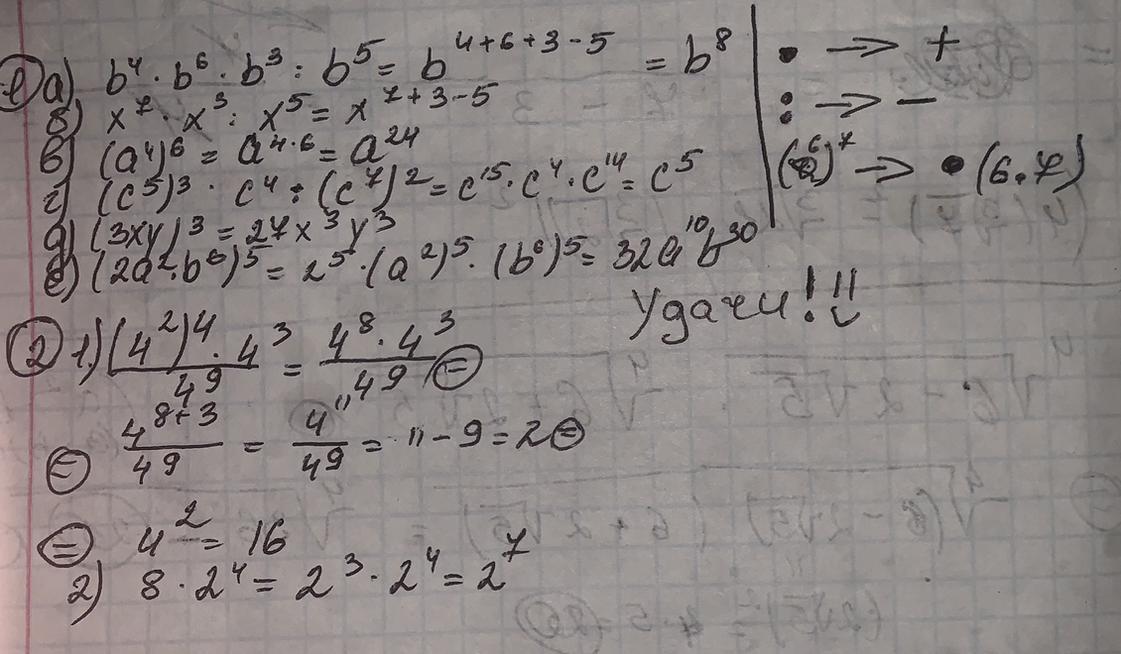 ① а) b⁴ · b⁶ · b³ : b⁵ = b⁴⁺⁶⁺³⁻⁵ = b⁸
б) x⁷ · x³ : x⁵ = x⁷⁺³⁻⁵
в) (a⁴)⁶ = a⁴·⁶ = a²⁴
г) (c⁵)³ · c⁴ : (c⁷)² = c¹⁵ · c⁴ · c¹⁴ = c⁵
д) (3xy)³ = 27x³y³
е) (2a² · b⁶)⁵ = 2⁵ · (a²)⁵ · (b⁶)⁵ = 32a¹⁰b³⁰
• → +
: → −
( ⁶)⁷ → • (6·7)
Удачи!!!
② 1) (4²)⁴ · 4³ / 4⁹ = 4⁸ · 4³ / 4⁹ ⊜
⊜ 4⁸⁺³ / 4⁹ = 4¹¹ / 4⁹ = 11 − 9 = 2 ⊜
⊜ 4² = 16
2) 8 · 2⁴ = 2³ · 2⁴ = 2⁷